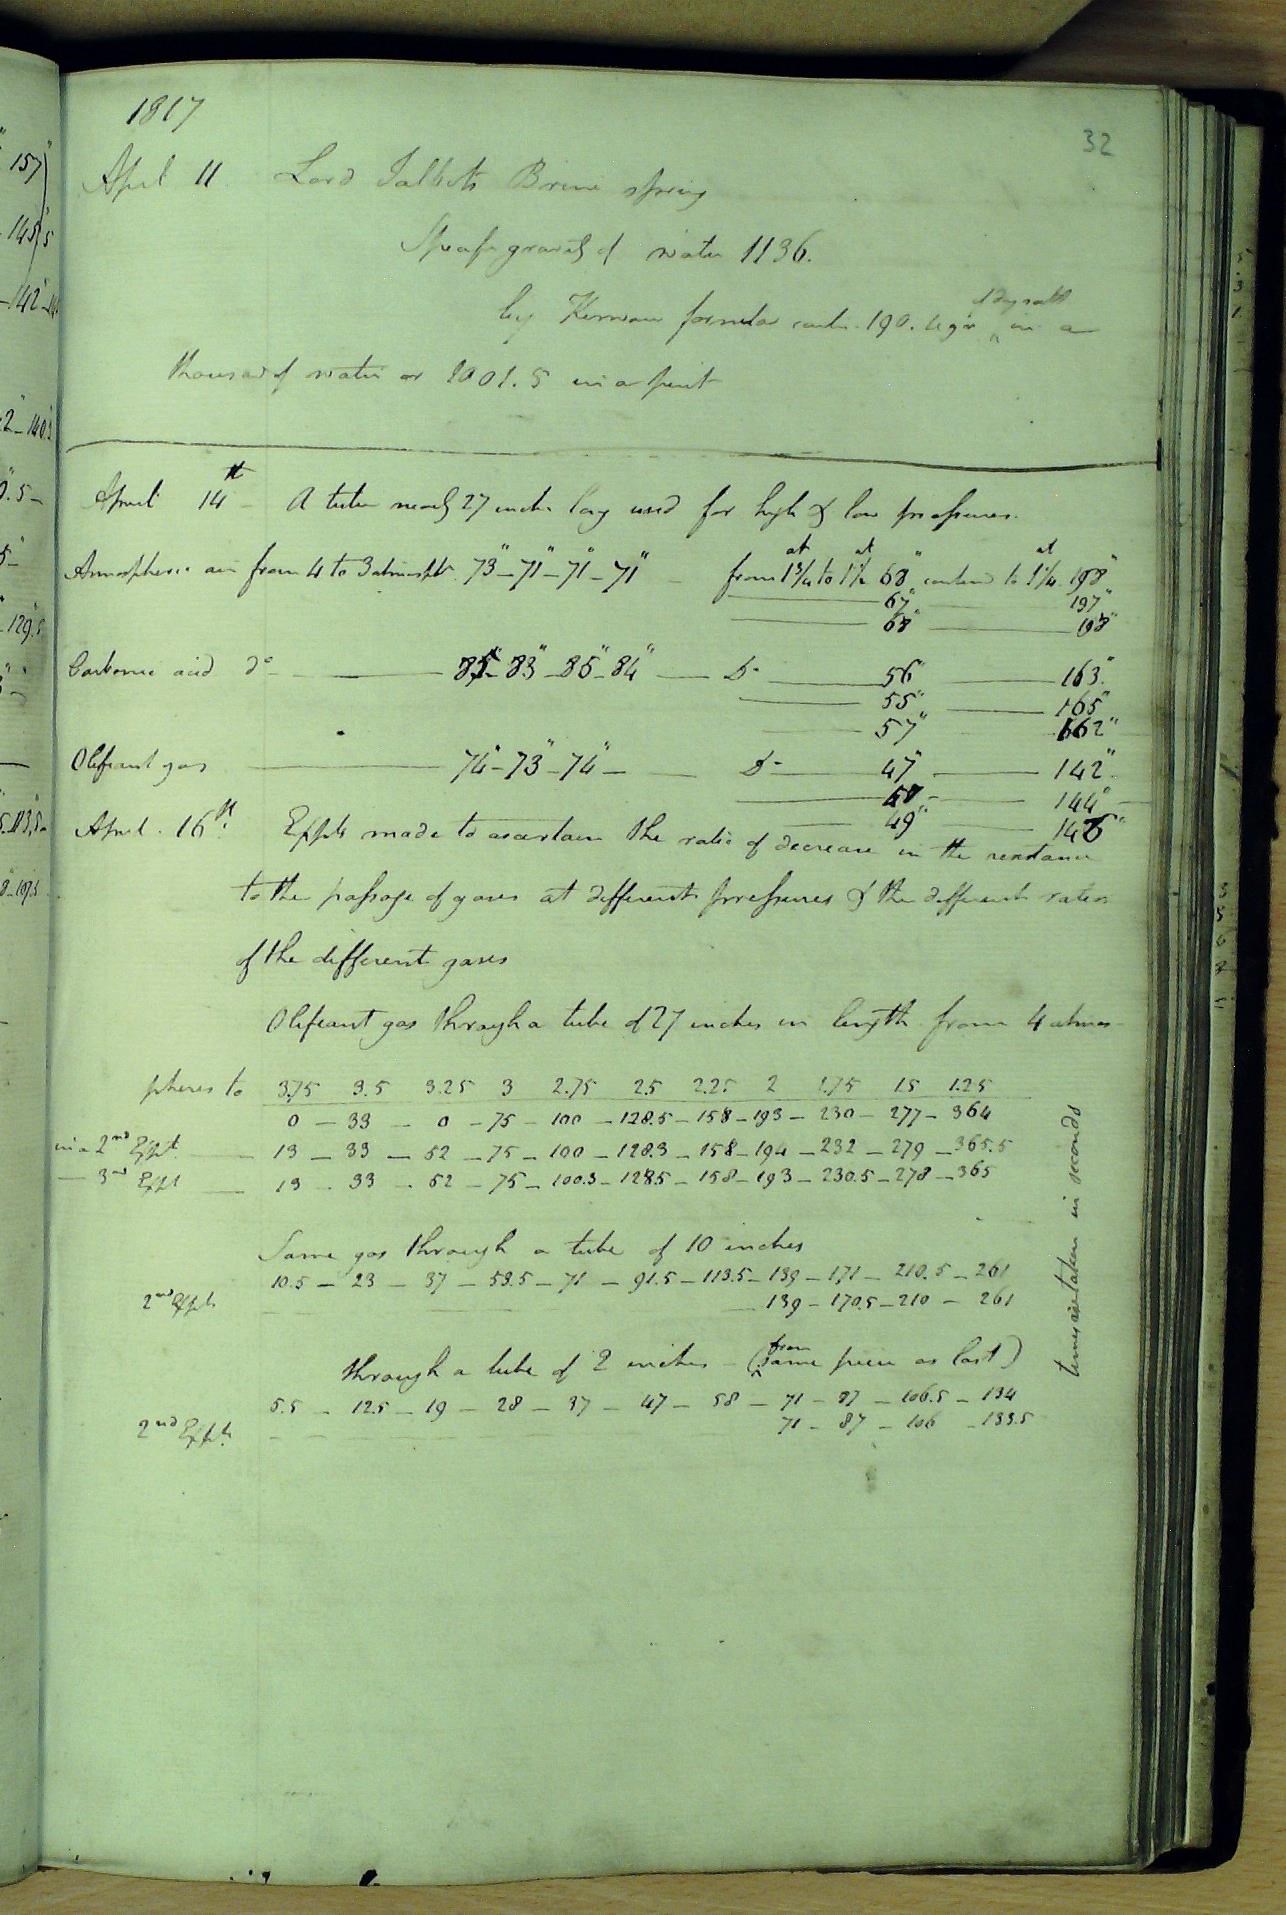 1817
32
April 11 Lord Talbots Brine spring
Specific gravity of water 1136.
by Kirwans formula contn. 190.
of dry salt
in a
thousand of water or 1001.5 in a pint
April 14th A tube nearly 27 inches long used for high & low pressures.
Atmospheric air from 4 to 3 atmosphr. 73" - 71" - 71" - 71" - from 1 3/4 at to 1 1/2 at 68" contind to 1 1/4 at 198"
67" 197"
68" 198"
Carbonic acid do - 85" - 83" - 85" - 84" Do - 56" 163"
55" 165"
57" 162"
Olefiant gas 74" - 73" - 74" - Do - 47" 142"
48" 144"
49" 146"
April 16th Expts made to ascertain the ratio of decrease in the resistance
to the passage of gases at different pressures & the different ratios
of the different gases
Olefiant gas through a tube of 27 inches in length from 4 atmos-
pheres to 3.75 3.5 3.25 3 2.75 2.5 2.25 2 1.75 1.5 1.25
0 - 33 - 0 - 75 - 100 - 128.5 - 158 - 193 - 230 - 277 - 364
in a 2nd Expt 19 - 33 - 52 - 75 - 100 - 128.3 - 158 - 194 - 232 - 279 - 365.5
- 3rd Expt - 19 - 33 - 52 - 75 - 100.3 - 128.5 - 158 - 193 - 230.5 - 278 - 365
Same gas through a tube of 10 inches
10.5 - 23 - 37 - 53.5 - 71 - 91.5 - 113.5 - 139 - 171 - 210.5 - 261
2nd Expt 139 - 170.5 - 210 - 261
through a tube of 2 inches - (from same piece as last)
5.5 - 12.5 - 19 - 28 - 37 - 47 - 58 - 71 - 87 - 106.5 - 134
2nd Expt. 71 - 87 - 106 - 133.5
times are taken in seconds